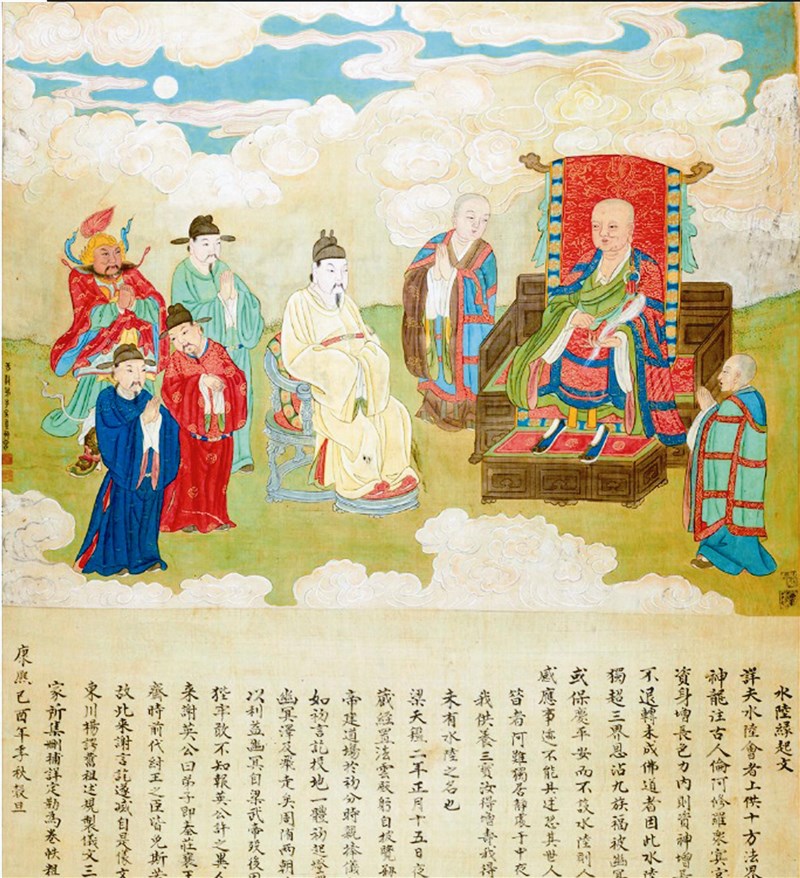 水陸縁起文
詳夫水陸會者上供十方法界
神龍注古人倫阿修羅衆冥官
資身增長色力內則資神增長
不退轉未成佛道者因此水陸
獨超三界恩沾九族福被幽冥
或保慶平安而不設水陸則人
感應事迹不能具述忍其世人
昔者阿難獨居靜處于中夜
我供養三寳汝得增壽我得
未有水陸之名也
梁天 二年正月十五日夜
藏經置法雲殿躬自披覽
帝建道場於初分時親捧儀
如初言訖投地一禮初起燈
幽冥澤及飛走矣周隋兩朝
以利益幽冥自梁武帝歿後因
牢敢不知報英公許之異人
来謝英公曰弟子即秦莊襄王
齋時前代紂王之臣皆免斯苦
故此来謝言訖遂滅自是儀文
東川楊諤嘗祖述規製儀文三
家所集刪補詳定勒爲卷帙粗
康熙己酉年季秋穀旦